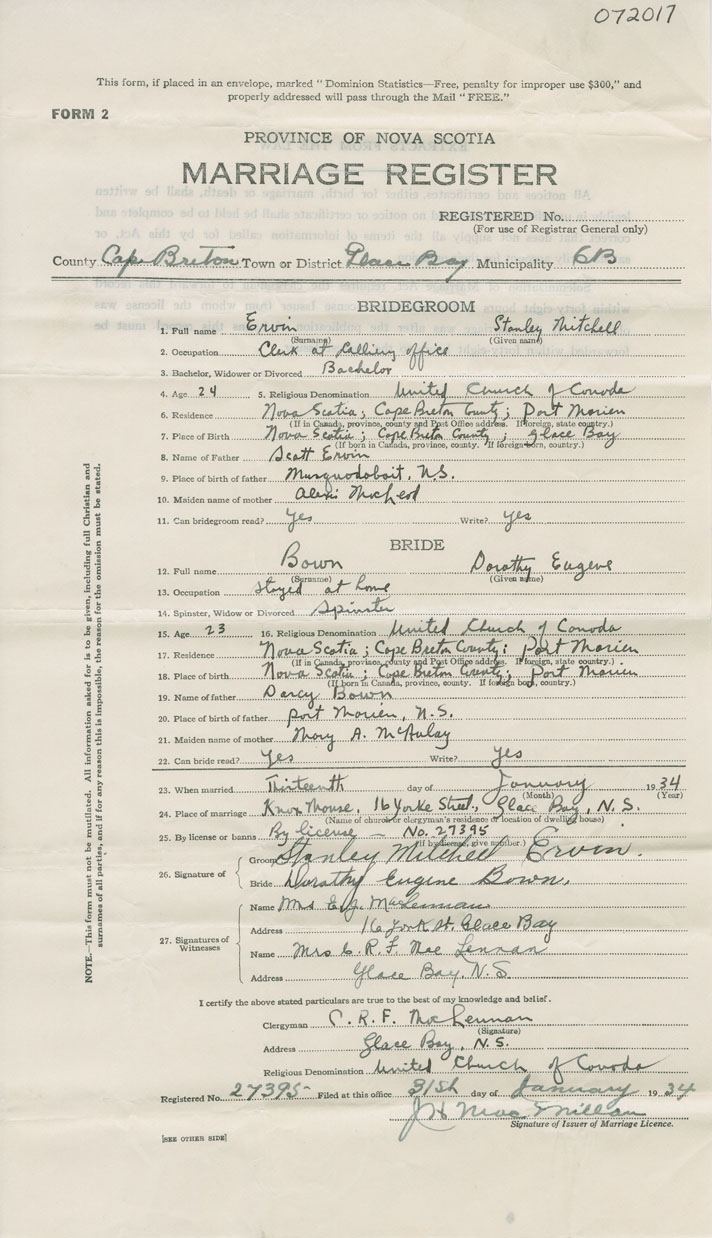 072017
This form, if placed in an envelope, marked "Dominion Statistics—Free, penalty for improper use $300," and
properly addressed will pass through the Mail "FREE."
FORM 2
PROVINCE OF NOVA SCOTIA
MARRIAGE REGISTER
REGISTERED No.
(For use of Registrar General only)
County Cape Breton Town or District Glace Bay Municipality 6B
BRIDEGROOM
1. Full name Ervin Stanley Mitchell
(Surname) (Given name)
2. Occupation Clerk at office
3. Bachelor, Widower or Divorced Bachelor
4. Age 24 5. Religious Denomination United Church of Canada
6. Residence Nova Scotia; Cape Breton County; Port Morien
(If in Canada, province, county and Post Office address. If foreign, state country.)
7. Place of Birth Nova Scotia; Cape Breton County; Glace Bay
(If born in Canada, province, county. If foreign born, country.)
8. Name of Father Scott Ervin
9. Place of birth of father Musquodoboit, N.S.
10. Maiden name of mother McLeod
11. Can bridegroom read? Yes Write? Yes
BRIDE
12. Full name Bown Dorothy Eugene
(Surname) (Given name)
13. Occupation Stayed at home
14. Spinster, Widow or Divorced Spinster
15. Age 23 16. Religious Denomination United Church of Canada
17. Residence Nova Scotia; Cape Breton County; Port Morien
(If in Canada, province, county and Post Office address. If foreign, state country.)
18. Place of birth Nova Scotia; Cape Breton County; Port Morien
(If born in Canada, province, county. If foreign born, country.)
19. Name of father Darcy Bown
20. Place of birth of father Port Morien, N.S.
21. Maiden name of mother Mary A. McAulay
22. Can bride read? Yes Write? Yes
23. When married Thirteenth day of January 1934
(Month) (Year)
24. Place of marriage Knox Manse, 16 Yorke Street, Glace Bay, N.S.
(Name of church or clergyman's residence or location of dwelling house)
25. By license or banns By license — No. 27395
(If by license, give number.)
26. Signature of
Groom Stanley Mitchell Ervin.
Bride Dorothy Eugene Bown.
27. Signatures of
Witnesses
Name Mrs MacLennan
Address 16 York St. Glace Bay
Name Mrs C. R. F. MacLennan
Address Glace Bay, N.S.
I certify the above stated particulars are true to the best of my knowledge and belief.
Clergyman C. R. F. MacLennan
(Signature)
Address Glace Bay, N.S.
Religious Denomination United Church of Canada
Registered No. 27395 Filed at this office 31st day of January 1934
Signature of Issuer of Marriage Licence.
[SEE OTHER SIDE]
NOTE.—This form must not be mutilated. All information asked for is to be given, including full Christian and
surnames of all parties, and if for any reason this is impossible, the reason for the omission must be stated.